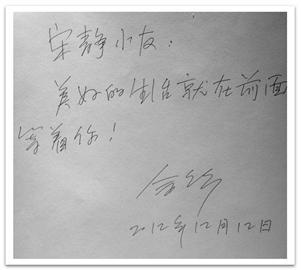 宋静小友：
美好的生活就在前面
等着你！
2012年12月12日